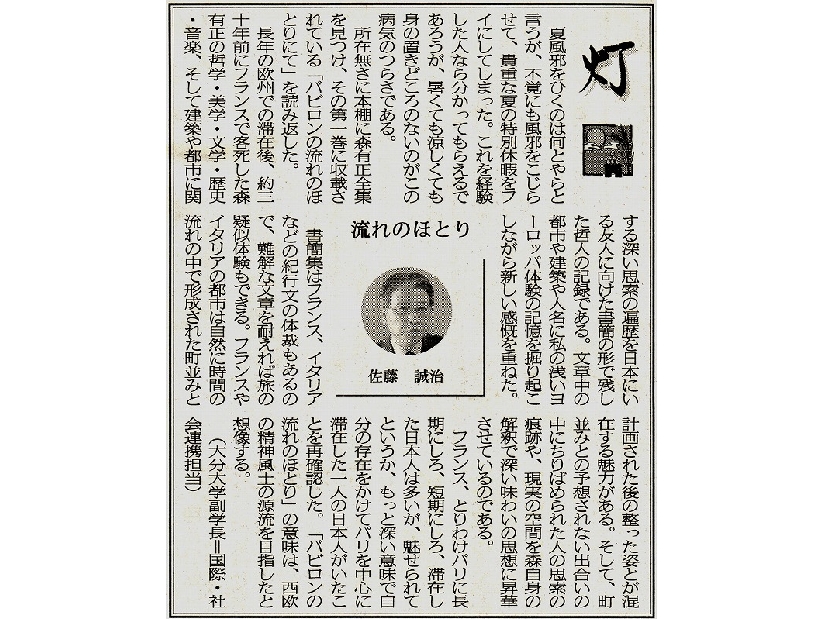 灯
流れのほとり
佐藤　誠治
夏風邪をひくのは何とやらと
言うが、不覚にも風邪をこじら
せて、貴重な夏の特別休暇をフ
イにしてしまった。これを経験
した人なら分かってもらえるで
あろうが、暑くても涼しくても
身の置きどころのないのがこの
病気のつらさである。
所在無さに本棚に森有正全集
を見つけ、その第一巻に収載さ
れている「バビロンの流れのほ
とりにて」を読み返した。
長年の欧州での滞在後、約三
十年前にフランスで客死した森
有正の哲学・美学・文学・歴史
・音楽、そして建築や都市に関
する深い思索の遍歴を日本にい
る友人に向けた書簡の形で残し
た哲人の記録である。文章中の
都市や建築や人名に私の浅いヨ
ーロッパ体験の記憶を掘り起こ
しながら新しい感慨を重ねた。
書簡集はフランス、イタリア
などの紀行文の体裁もあるの
で、難解な文章を耐えれば旅の
疑似体験もできる。フランスや
イタリアの都市は自然に時間の
流れの中で形成された町並みと
計画された後の整った姿とが混
在する魅力がある。そして、町
並みとの予想されない出合いの
中にちりばめられた人の思索の
痕跡や、現実の空間を森自身の
解釈で深い味わいの思想に昇華
させているのである。
フランス、とりわけパリに長
期にしろ、短期にしろ、滞在し
た日本人は多いが、魅せられて
というか、もっと深い意味で自
分の存在をかけてパリを中心に
滞在した一人の日本人がいたこ
とを再確認した。「バビロンの
流れのほとり」の意味は、西欧
の精神風土の源流を目指したと
想像する。
（大分大学副学長＝国際・社
会連携担当）